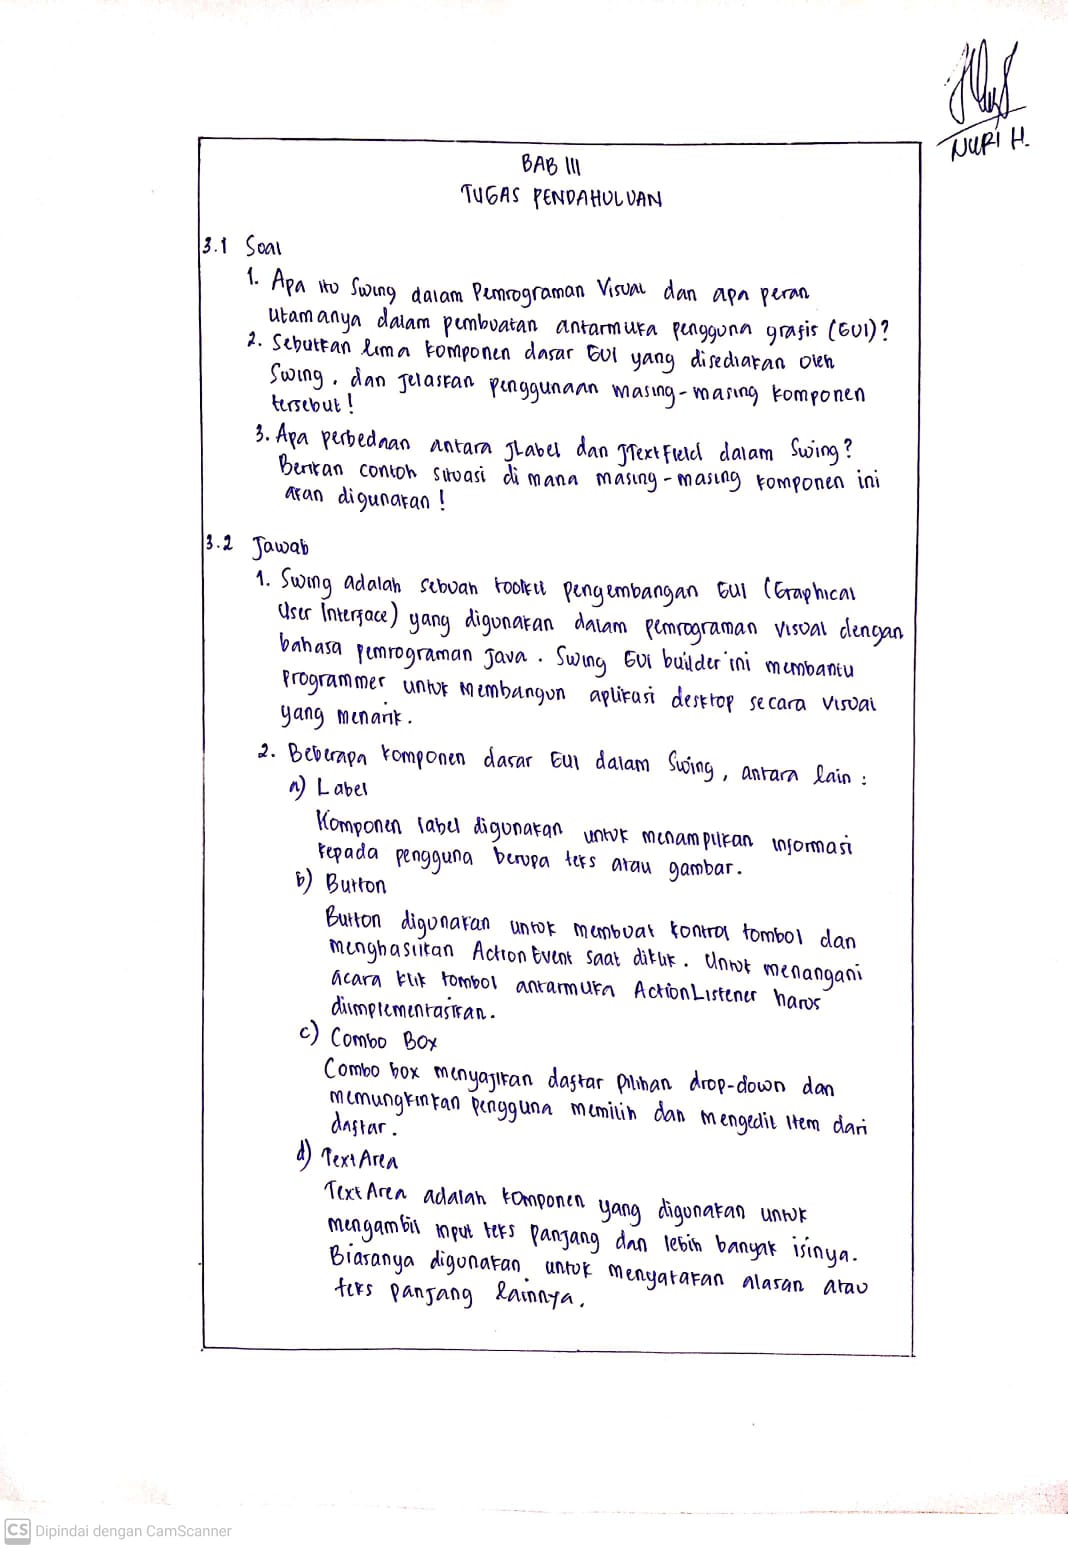 NURI H.
BAB III
TUGAS PENDAHULUAN
3.1 Soal
1. Apa itu Swing dalam Pemrograman Visual dan apa peran
utamanya dalam pembuatan antarmuka pengguna grafis (GUI)?
2. Sebutkan lima komponen dasar GUI yang disediakan oleh
Swing, dan jelaskan penggunaan masing-masing komponen
tersebut!
3. Apa perbedaan antara JLabel dan JTextField dalam Swing?
Berikan contoh situasi di mana masing-masing komponen ini
akan digunakan!
3.2 Jawab
1. Swing adalah sebuah toolkit pengembangan GUI (Graphical
User Interface) yang digunakan dalam pemrograman visual dengan
bahasa pemrograman java. Swing GUI builder ini membantu
Programmer untuk membangun aplikasi desktop secara visual
yang menarik.
2. Beberapa komponen dasar GUI dalam Swing, antara lain :
a) Label
Komponen label digunakan untuk menampilkan informasi
kepada pengguna berupa teks atau gambar.
b) Button
Button digunakan untuk membuat kontrol tombol dan
menghasilkan ActionEvent saat diklik. Untuk menangani
acara klik tombol antarmuka ActionListener harus
diimplementasikan.
c) Combo Box
Combo box menyajikan daftar pilihan drop-down dan
memungkinkan pengguna memilih dan mengedit item dari
daftar.
d) TextArea
TextArea adalah komponen yang digunakan untuk
mengambil input teks panjang dan lebih banyak isinya.
Biasanya digunakan untuk menyatakan alasan atau
teks panjang lainnya.
CS Dipindai dengan CamScanner